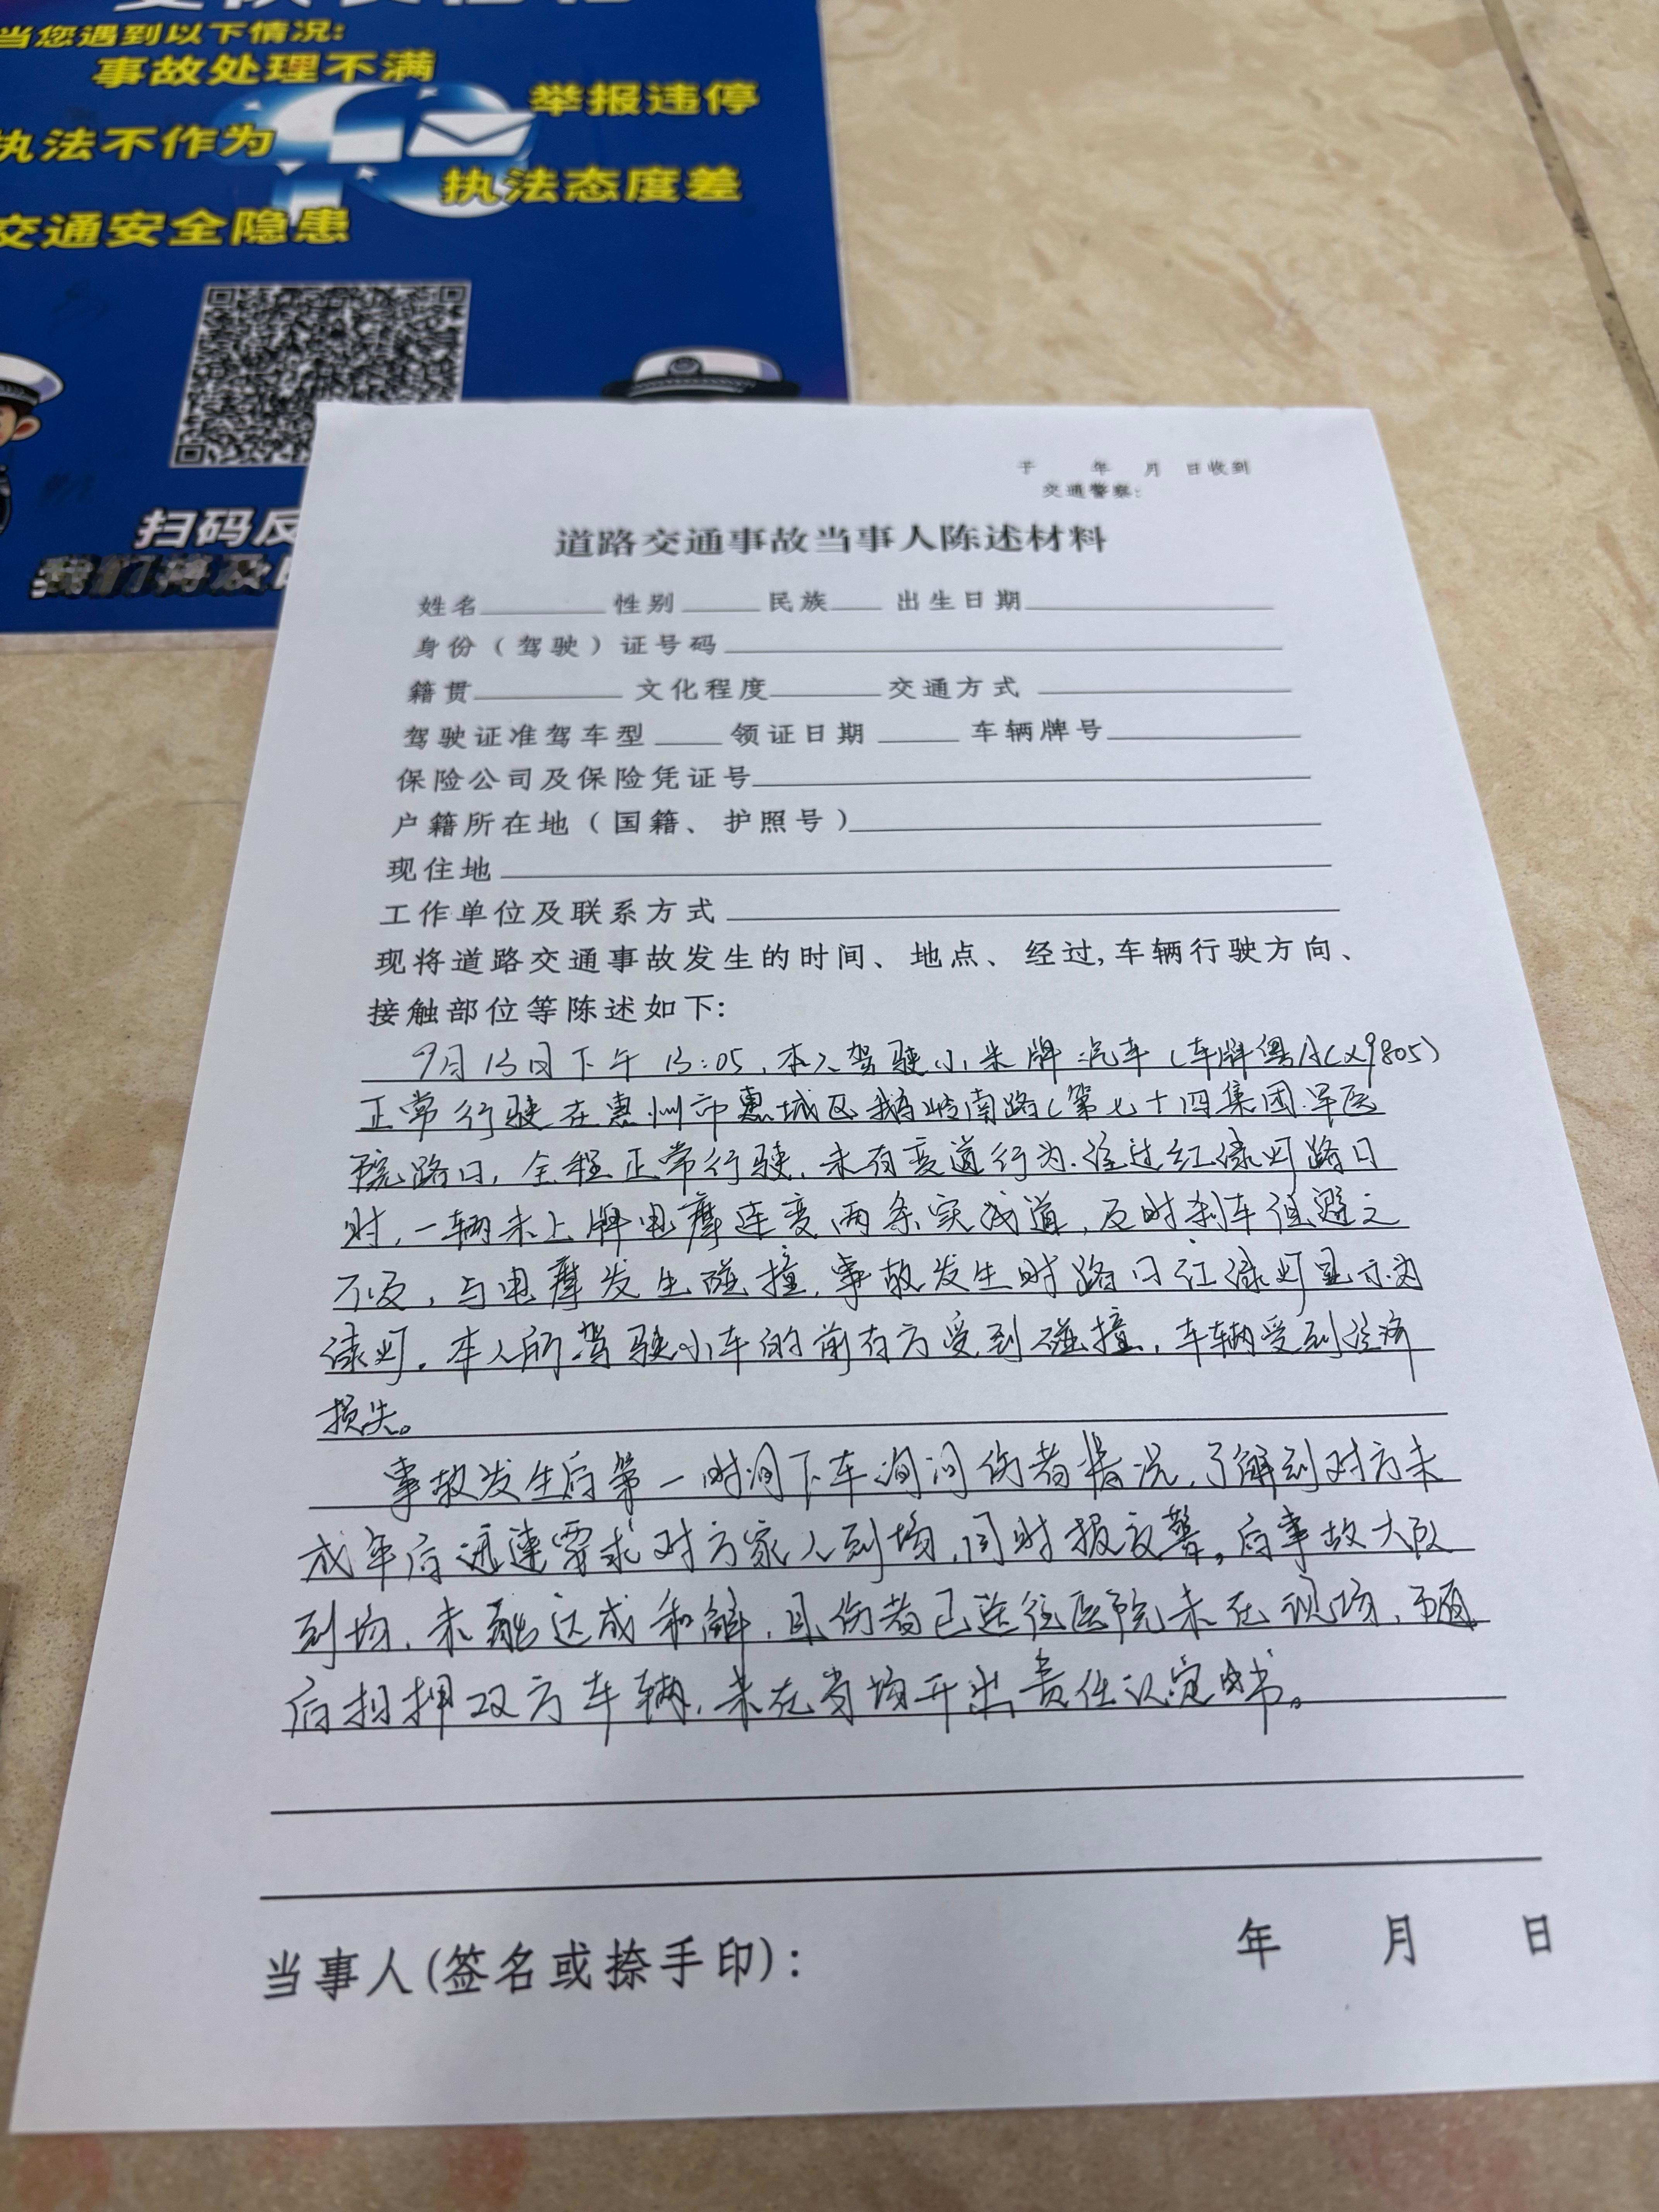 当您遇到以下情况:
事故处理不满
举报违停
执法不作为
执法态度差
交通安全隐患
扫码反
我们将及
于 年 月 日收到
交通警察:
道路交通事故当事人陈述材料
姓名 性别 民族 出生日期
身份(驾驶)证号码
籍贯 文化程度 交通方式
驾驶证准驾车型 领证日期 车辆牌号
保险公司及保险凭证号
户籍所在地(国籍、护照号)
现住地
工作单位及联系方式
现将道路交通事故发生的时间、地点、经过,车辆行驶方向、
接触部位等陈述如下:
9月13日下午13:05,本人驾驶小米牌汽车(车牌粤ACX9805)
正常行驶在惠州市惠城区鹅岭南路(第七十四集团军医
院路口,全程正常行驶,未有变道行为.经过红绿灯路口
时,一辆未上牌电摩连变两条实线道,及时刹车但避之
不及,与电摩发生碰撞,事故发生时路口红绿灯显示为
绿灯。本人所驾驶小车的前右方受到碰撞,车辆受到经济
损失。
事故发生后第一时间下车询问伤者情况,了解到对方未
成年后迅速要求对方家人到场,同时报交警。后事故大队
到场,未能达成和解,且伤者已送往医院未在现场,
后扣押双方车辆,未在当场开出责任认定书。
当事人(签名或捺手印): 年 月 日